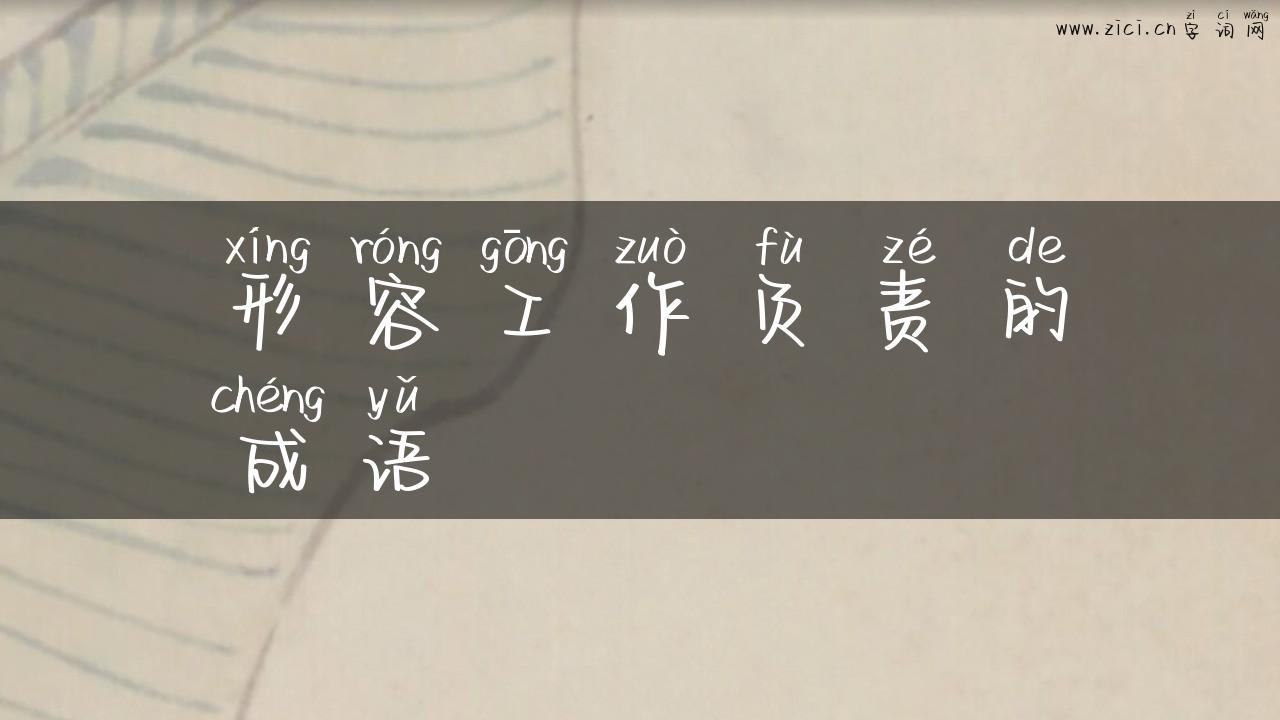 zì cí wǎng
www.zici.cn 字 词 网
xíng róng gōng zuò fù zé de
形 容 工 作 负 责 的
chéng yǔ
成 语